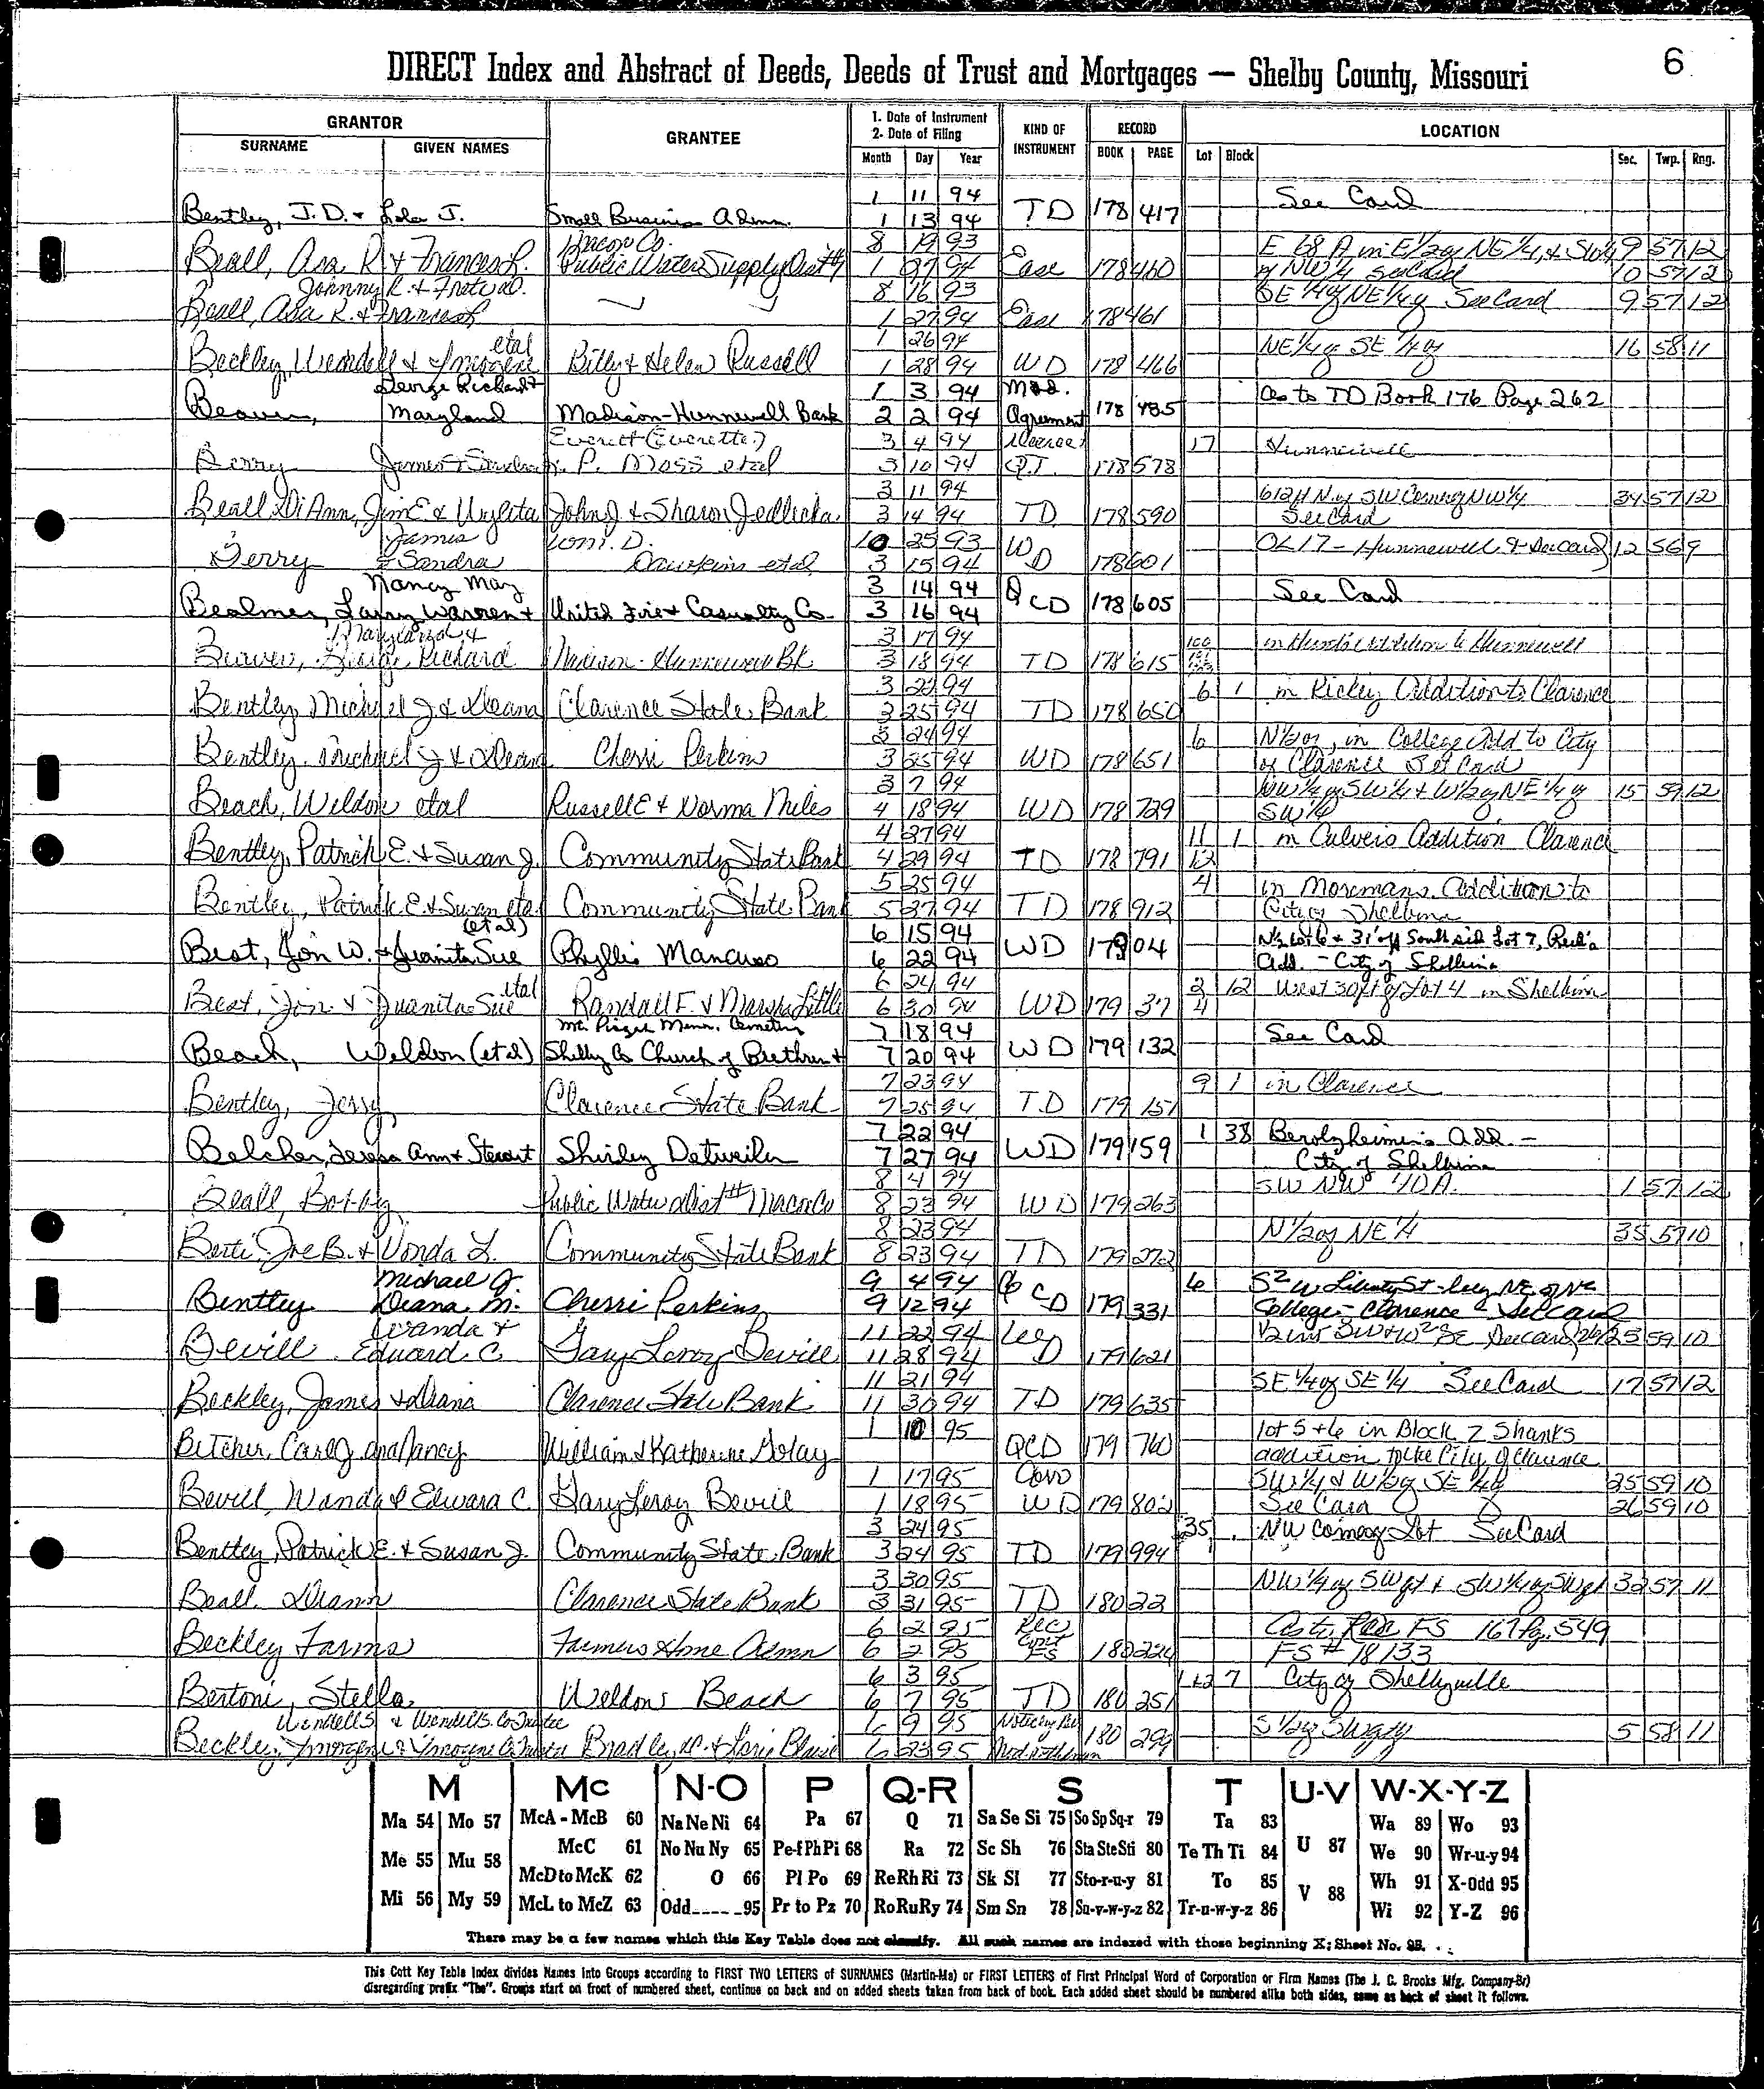 6
DIRECT Index and Abstract of Deeds, Deeds of Trust and Mortgages — Shelby County, Missouri
GRANTOR GRANTEE 1. Date of Instrument 2. Date of Filing KIND OF INSTRUMENT RECORD LOCATION
SURNAME GIVEN NAMES Month Day Year BOOK PAGE Lot Block Sec. Twp. Rng.
1 11 94 See Card
Bentley, J.D. & Lola J. Small Business Admn. 1 13 94 TD 178 417
Macon Co. 8 19 93 E 68 A in E1/2 of NE1/4, & 9 57 12
Beall, Asa R & Frances L. Public Water Supply Dist #1 1 27 94 Ease 178 460 of NW1/4 10 57 12
Johnny R. & 8 16 93 SE 1/4 of NE 1/4 of See Card 9 57 12
Beall, Asa R. & Frances L 1 27 94 Ease 178 461
etal 1 26 94 NE1/4 of SE 1/4 of 16 58 11
Beckley, Wendell & Imogene Billy & Helen Russell 1 28 94 WD 178 466
George Richard & 1 3 94 Mod. As to TD Book 176 Page 262
Beaver, Maryland Madison-Hunnewell Bank 2 2 94 Agreement 178 485
Everett (Everette?) 3 4 94 Decree 17 Hunnewell
Berry James & Sandra P. Moss etal 3 10 94 Q.T. 178 578
3 11 94 612 ft N. of SW Corner of NW1/4 34 57 12
Beall DiAnn, Jim E & Wyleta John J & Sharon Jedlicka 3 14 94 TD 178 590 See Card
James Wm. D. 10 25 93 W OL 17 - Hunnewell & See Card 12 56 9
Berry & Sandra Dawkins etal 3 15 94 D 178 601
Nancy May 3 14 94 See Card
Bealmer, Larry Warren & United Fire & Casualty Co. 3 16 94 QCD 178 605
Maryland & 3 17 94 100 in Addition to Hunnewell
Beaver, George Richard Madison-Hunnewell Bk 3 18 94 TD 178 615
3 94 6 1 in Rickey Addition to Clarence
Bentley, Michael J & Deana Clarence State Bank 3 25 94 TD 178 650
3 24 94 6 N1/2 of, in College Add to City
Bentley Michael J & Deana Cherri Perkins 3 25 94 WD 178 651 of Clarence See Card
3 7 94 NW1/4 of SW1/4 & W1/2 of NE1/4 of 15 59 12
Beach, Weldon etal Russell E & Norma Miles 4 18 94 WD 178 729 SW1/4
4 27 94 11 1 in Culvers Addition Clarence
Bentley, Patrick E. & Susan J. Community State Bank 4 29 94 TD 178 791 12
5 25 94 4 in Moremans Addition to
Bentley, Patrick E. & Susan etal Community State Bank 5 27 94 TD 178 912 City of Shelbina
(etal) 6 15 94 N1/2 Lot 6 & 31' off South side Lot 7, Reed's
Best, Jon W. & Juanita Sue Phyllis Mancuso 6 22 94 WD 179 04 Add. - City of Shelbina
etal 6 24 94 2 12 West 30 ft of Lot 4 in Shelbina
Best, Jon & Juanita Sue Randall F. & Marsha Little 6 30 94 WD 179 37 4
Mt. Pisgah Mem. Cemetery 7 18 94 See Card
Beach, Weldon (etal) Shelby Co Church of Brethren & 7 20 94 WD 179 132
7 23 94 9 1 in Clarence
Bentley, Jerry Clarence State Bank 7 25 94 TD 179 151
7 22 94 1 38 Berolzheimer's Add. -
Belcher, Teresa Ann & Stewart Shirley Detweiler 7 27 94 WD 179 159 City of Shelbina
8 4 94 SW NW 40A. 1 57 12
Beall, Bobby Public Water Dist # Macon Co 8 23 94 WD 179 263
8 23 94 N1/2 of NE 1/4 35 57 10
Berti Joe B. & Vonda L. Community State Bank 8 23 94 TD 179 272
Michael J. 9 4 94 6
Bentley Deana M. Cherri Perkins 9 12 94 QCD 179 331 College - Clarence See Card
Wanda & 11 22 94 See Card 26/25 59 10
Bevill Edward C. Gary Leroy Bevill 11 28 94 D 179 621
11 21 94 SE 1/4 of SE 1/4 See Card 17 57 12
Beckley, James & Diana Clarence State Bank 11 30 94 TD 179 635
1 10 95 lot 5 & 6 in Block 2 Shanks
Betcher, Carl J. and Nancy William & Katherine Golay QCD 179 760 addition to the City of Clarence
1 17 95 SW 1/4 & W1/2 of SE 1/4 of 25 59 10
Bevill, Wanda & Edward C. Gary Leroy Bevill 1 18 95 WD 179 802 See Card 26 59 10
3 24 95 35 NW corner of Lot See Card
Bentley, Patrick E. & Susan J. Community State Bank 3 24 95 TD 179 994
3 30 95 NW 1/4 of SW & SW 1/4 of 32 57 11
Beall Diann Clarence State Bank 3 31 95 TD 180 22
6 2 95 FS 167 Pg. 549
Beckley Farms Farmers Home Admn 6 2 95 FS 180 224 FS # 18133
6 3 95 1&2 7 City of Shelbyville
Bertoni, Stella Weldon Beach 6 7 95 TD 180 251
Wendell S & Wendell S. Co Trustee 6 9 95 S1/2 of SW 5 58 11
Beckley, Imogene & Imogene Co Trustee Bradley W. & Lorie Blaise 6 23 95 180 299
M Mc N-O P Q-R S T U-V W-X-Y-Z
Ma 54 Mo 57 McA - McB 60 Na Ne Ni 64 Pa 67 Q 71 Sa Se Si 75 So Sp Sq-r 79 Ta 83 Wa 89 Wo 93
McC 61 No Nu Ny 65 Pe-f Ph Pi 68 Ra 72 Sc Sh 76 Sta Ste Sti 80 Te Th Ti 84 U 87 We 90 Wr-u-y 94
Me 55 Mu 58 McD to McK 62 O 66 Pl Po 69 Re Rh Ri 73 Sk Sl 77 Sto-r-u-y 81 To 85 Wh 91 X-Odd 95
Mi 56 My 59 McL to McZ 63 Odd 95 Pr to Pz 70 Ro Ru Ry 74 Sm Sn 78 Su-v-w-y-z 82 Tr-u-w-y-z 86 V 88 Wi 92 Y-Z 96
There may be a few names which this Key Table does not classify. All such names are indexed with those beginning X; Sheet No. 95.
This Cott Key Table Index divides Names into Groups according to FIRST TWO LETTERS of SURNAMES (Martin-Ma) or FIRST LETTERS of First Principal Word of Corporation or Firm Names (The J. C. Brooks Mfg. Company-Br)
disregarding prefix "The". Groups start on front of numbered sheet, continue on back and on added sheets taken from back of book. Each added sheet should be numbered alike both sides, same as back of sheet it follows.